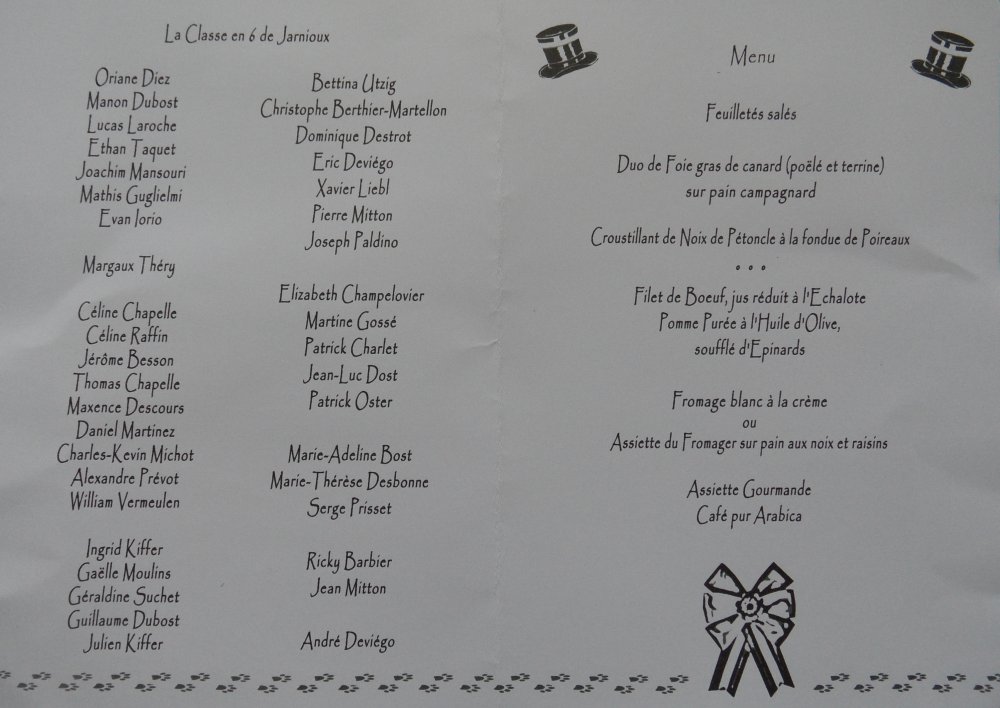 La Classe en 6 de Jarnioux
Oriane Diez
Manon Dubost
Lucas Laroche
Ethan Taquet
Joachim Mansouri
Mathis Guglielmi
Evan Iorio
Margaux Théry
Céline Chapelle
Céline Raffin
Jérôme Besson
Thomas Chapelle
Maxence Descours
Daniel Martinez
Charles-Kevin Michot
Alexandre Prévot
William Vermeulen
Ingrid Kiffer
Gaëlle Moulins
Géraldine Suchet
Guillaume Dubost
Julien Kiffer
Bettina Utzig
Christophe Berthier-Martellon
Dominique Destrot
Eric Deviégo
Xavier Liebl
Pierre Mitton
Joseph Paldino
Elizabeth Champelovier
Martine Gossé
Patrick Charlet
Jean-Luc Dost
Patrick Oster
Marie-Adeline Bost
Marie-Thérèse Desbonne
Serge Prisset
Ricky Barbier
Jean Mitton
André Deviégo
Menu
Feuilletés salés
Duo de Foie gras de canard (poëlé et terrine)
sur pain campagnard
Croustillant de Noix de Pétoncle à la fondue de Poireaux
• • •
Filet de Boeuf, jus réduit à l'Echalote
Pomme Purée à l'Huile d'Olive,
soufflé d'Epinards
Fromage blanc à la crème
ou
Assiette du Fromager sur pain aux noix et raisins
Assiette Gourmande
Café pur Arabica